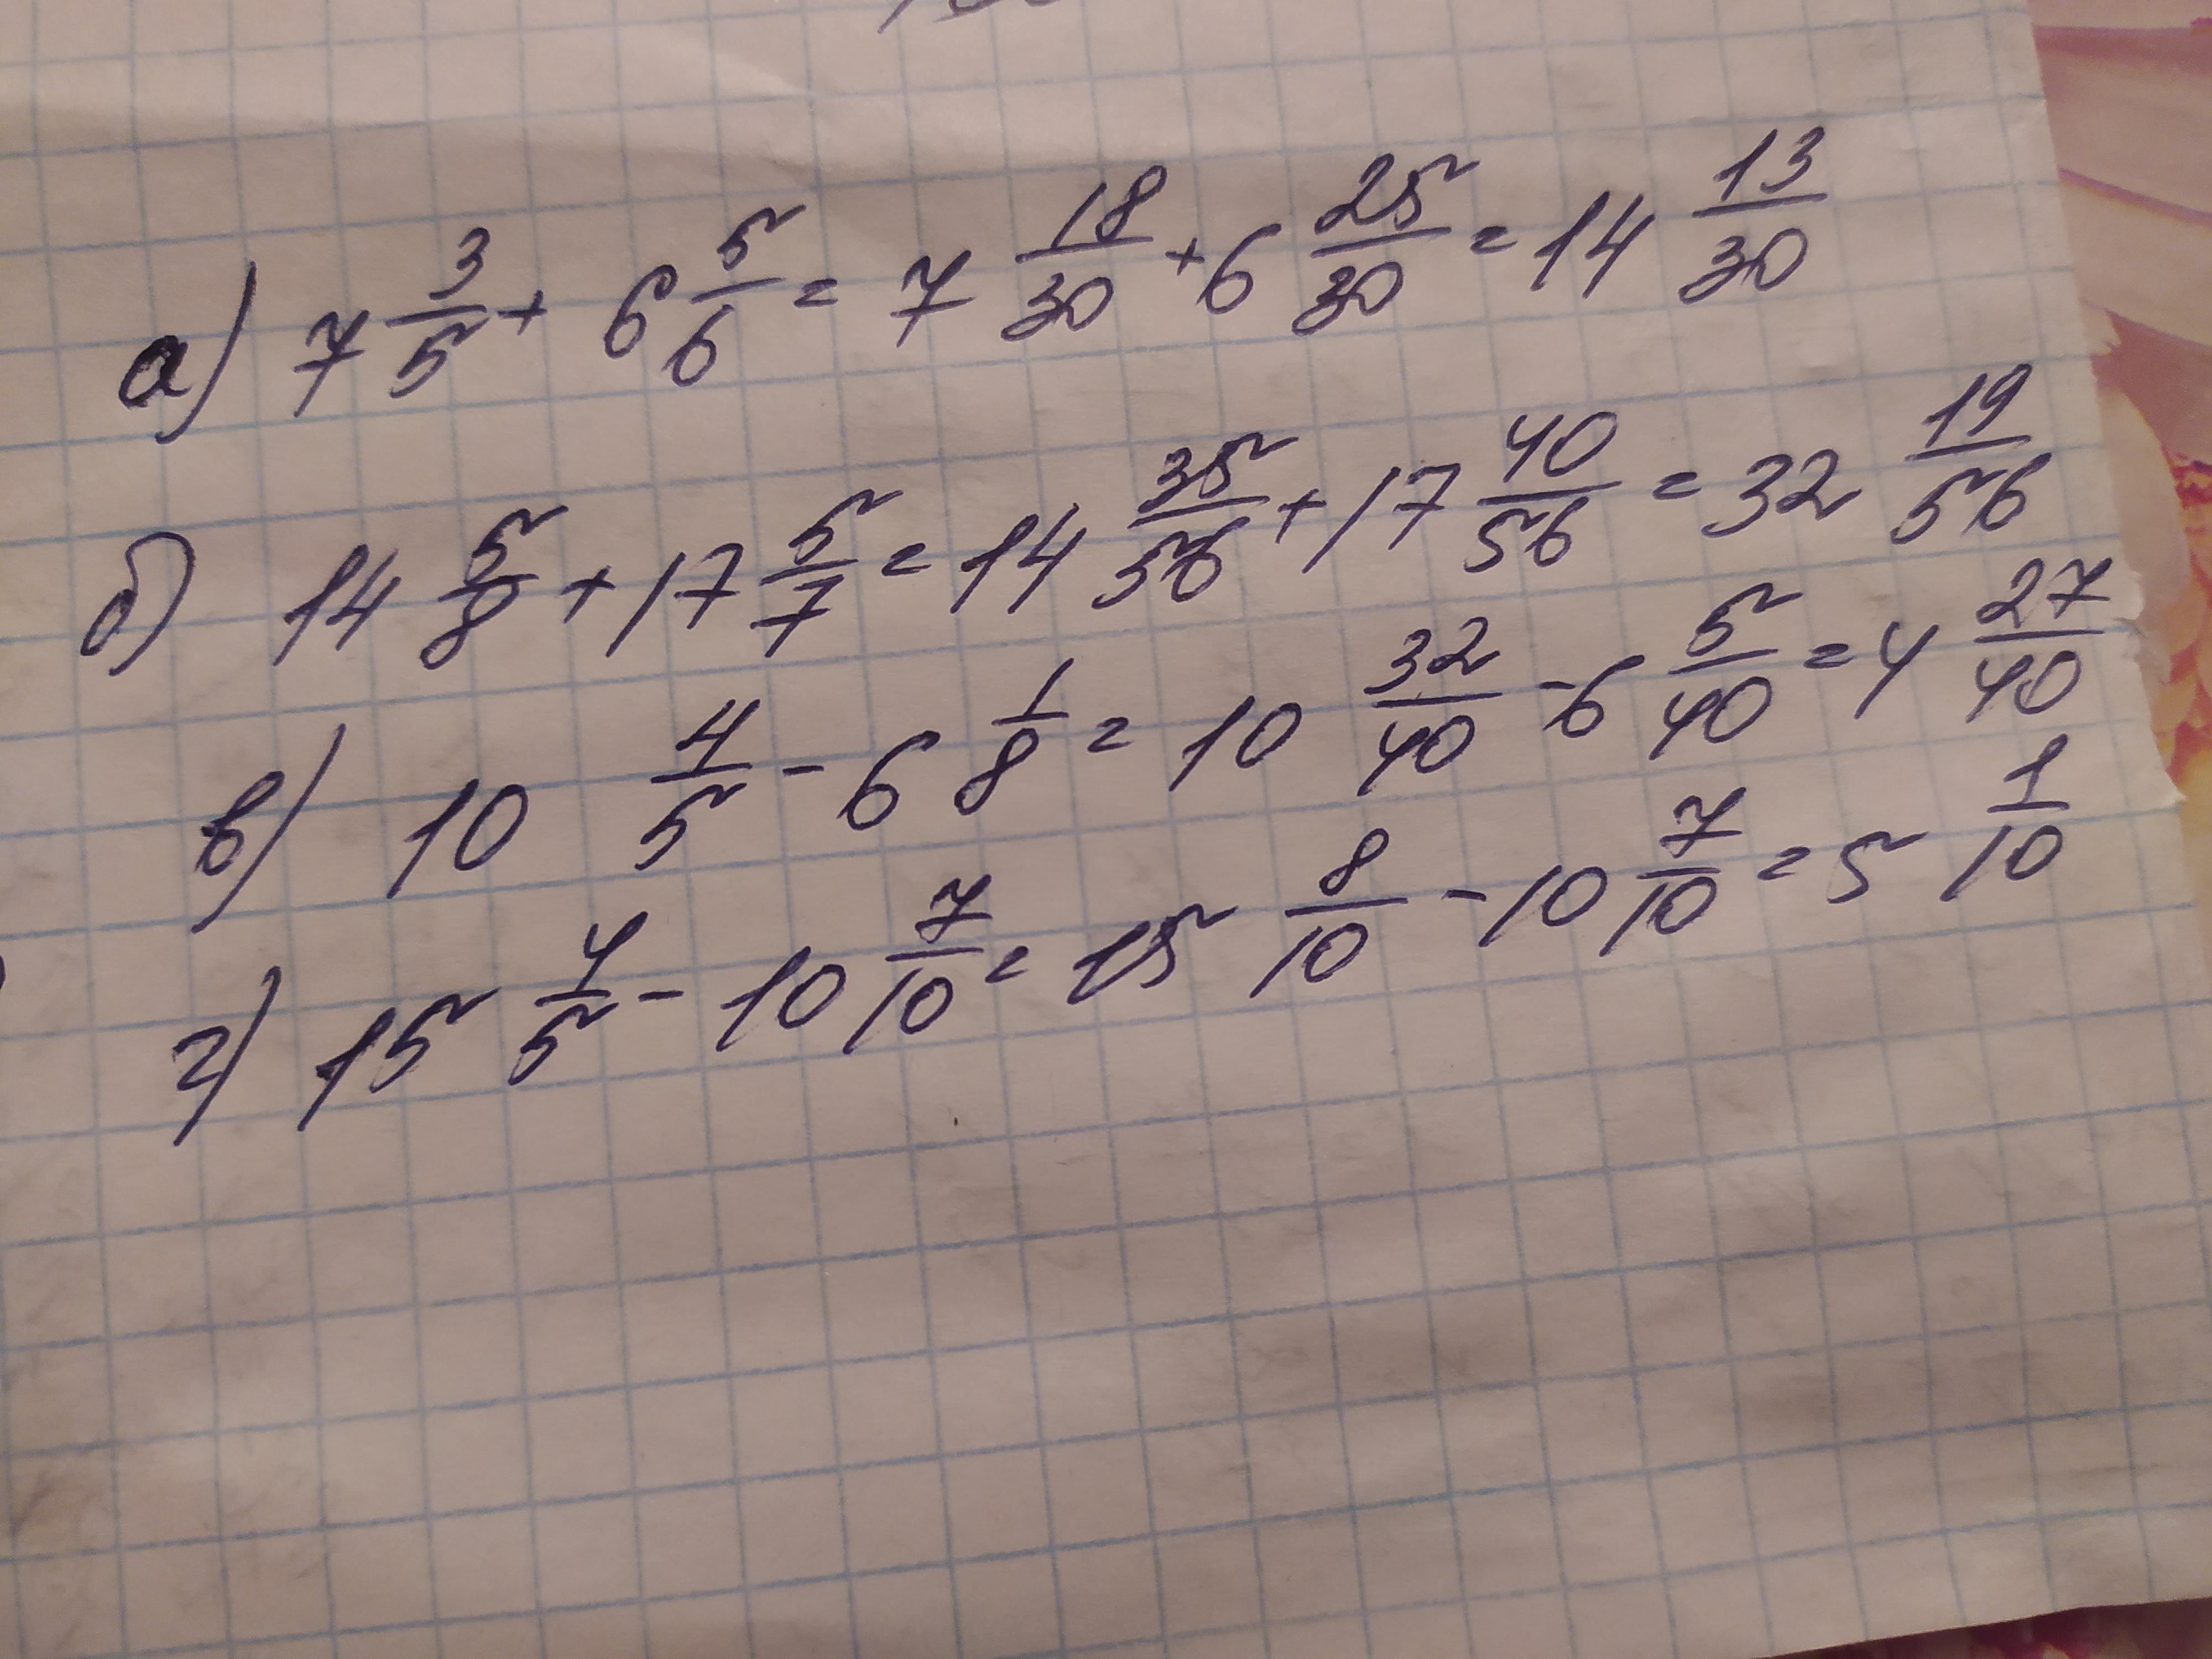 а) 7 3/5 + 6 5/6 = 7 18/30 + 6 25/30 = 14 13/30
б) 14 5/8 + 17 5/7 = 14 35/56 + 17 40/56 = 32 19/56
в) 10 4/5 - 6 1/8 = 10 32/40 - 6 5/40 = 4 27/40
г) 15 4/5 - 10 7/10 = 15 8/10 - 10 7/10 = 5 1/10